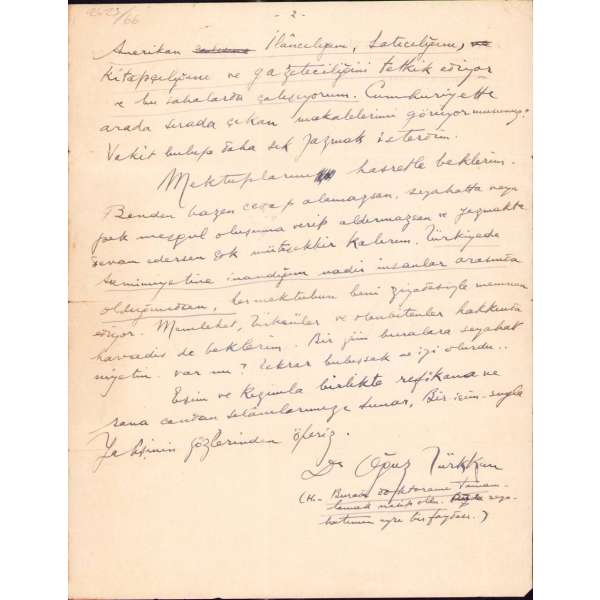 2423/66
- 2 -
Amerikan İlâncılığını, Satıcılığını,
Kitapçılığını ve gazeteciliğini tetkik ediyor
ve bu sahalarda çalışıyorum. Cumhuriyette
arada sırada çıkan makalelerimi görüyor musunuz?
Vakit bulup daha sık yazmak isterdim.
Mektuplarını hasretle beklerim.
Benden bazen cevap alamazsan, seyahatta veya
pek meşgul oluşuma verip aldırmazsan ve yazmakta
devam edersen çok müteşekkir kalırım. Türkiyede
samimiyetine inandığım nadir insanlar arasında
olduğundan, her mektubun beni ziyadesiyle memnun
ediyor. Memleket, Türkçüler ve olanbitenler hakkında
havadis de beklerim. Bir gün buralara seyahat
niyetin var mı? Tekrar buluşsak ne iyi olurdu..
Eşim ve Kızımla birlikte refikana ve
sana candan selâmlarımızı sunar, Bir
Yahşinin gözlerinden öperiz.
Dr Oğuz Türkkan
(H. Burada doktoramı tamam-
lamak nasib oldu. seya-
hatimin ayrı bir faydası..)